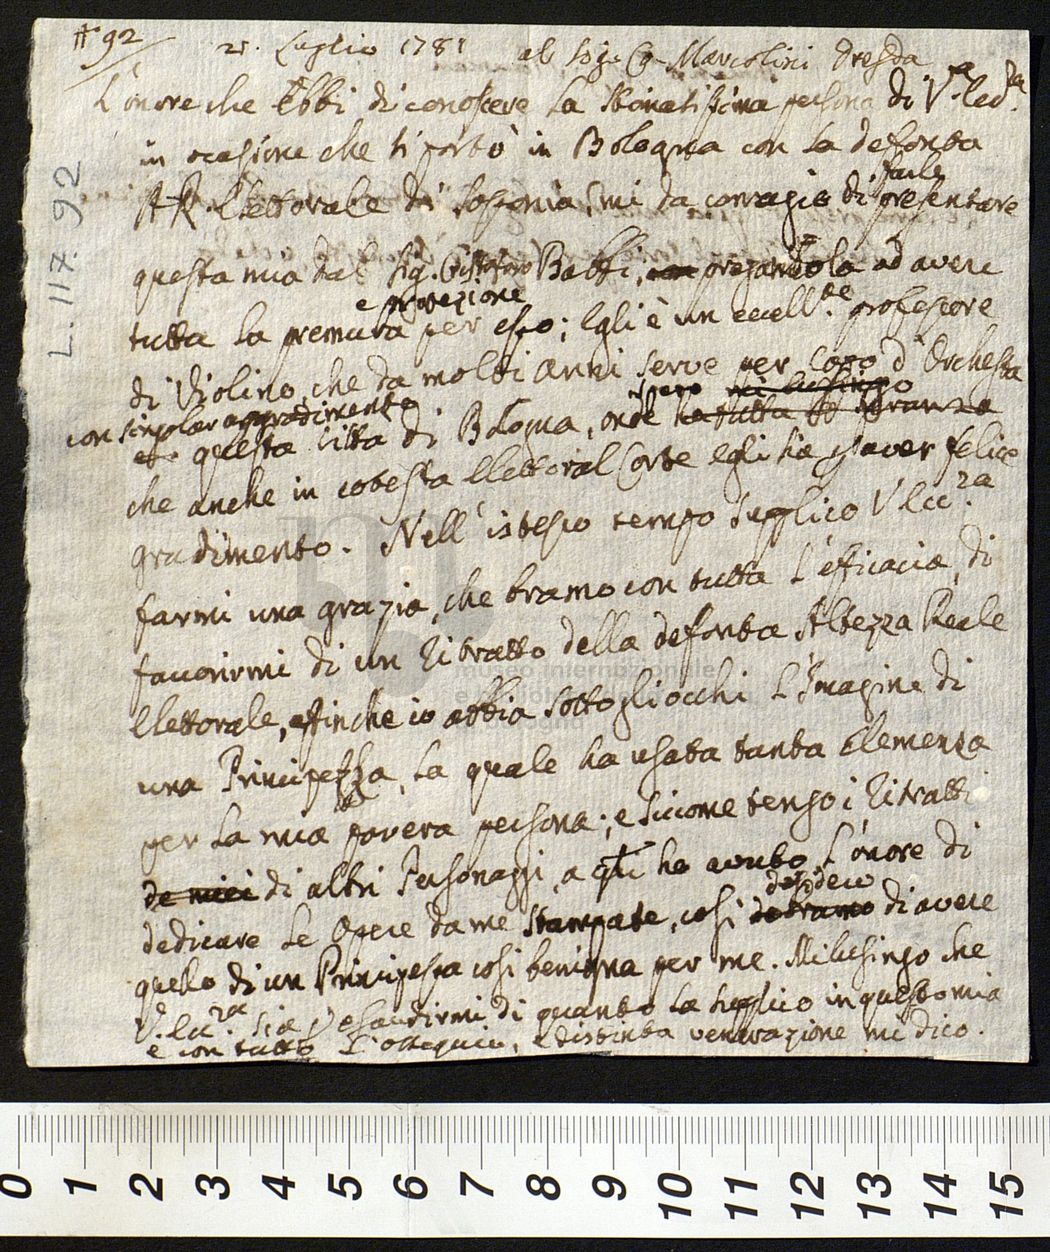 N° 92
2r. Luglio 1781 al Sig. Co. Marcolini Dresda
L'onore che Ebbi di conoscere la Stimatissima persona di V.ª Ecc.za
in ocasione che si portò in Bologna con la defonta
A R. Elettorale di Sassonia, mi da corragio di farle
presentare
questa mia dal Sig. Cristoforo Babbi, pregandola ad avere
e protezione
tutta la premura per esso; Egli è un eccell.te professore
di Violino, che da molti anni serve per Capo d'Orchestra
con singolar aggradimento
questa Città di Bologna, onde spero mi lusingo
ha tutta la speranza
che anche in cotesta Elettoral Corte egli sia p aver felice
gradimento. Nell'istesso tempo supplico V Ecc.za
farmi una grazia, che bramo con tutta l'efficacia, di
favorirmi di un Ritratto della defonta Altezza Reale
Elettorale, affinche io abbia sotto gli occhi l'Imagine di
una Principessa, la quale ha usata tanta Clemenza
per la mia povera persona; e siccome tengo i Ritratti
de miei di altri Personaggi, a q.li ho avuto l'onore di
dedicare le Opere da me stampate, così desidero
di avere
quello di un Principessa così benigna per me. Mi lusingo che
V.ª Ecc.za sia p esaudirmi di quanto la supplico in questa mia
e con tutto l'ossequio, e distinta venerazione mi dico.
L.117.92
museo internazionale
e biblioteca della musica
di bologna
0 1 2 3 4 5 6 7 8 9 10 11 12 13 14 15